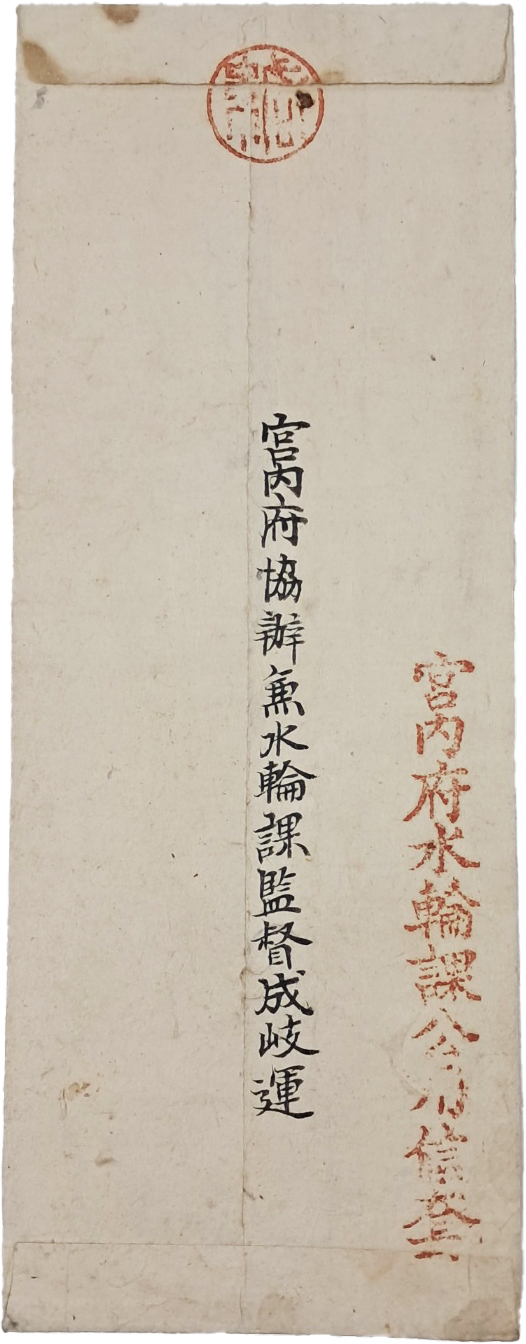 宮內府水輪課公用信
宮內府協辦兼水輪課監督成岐運